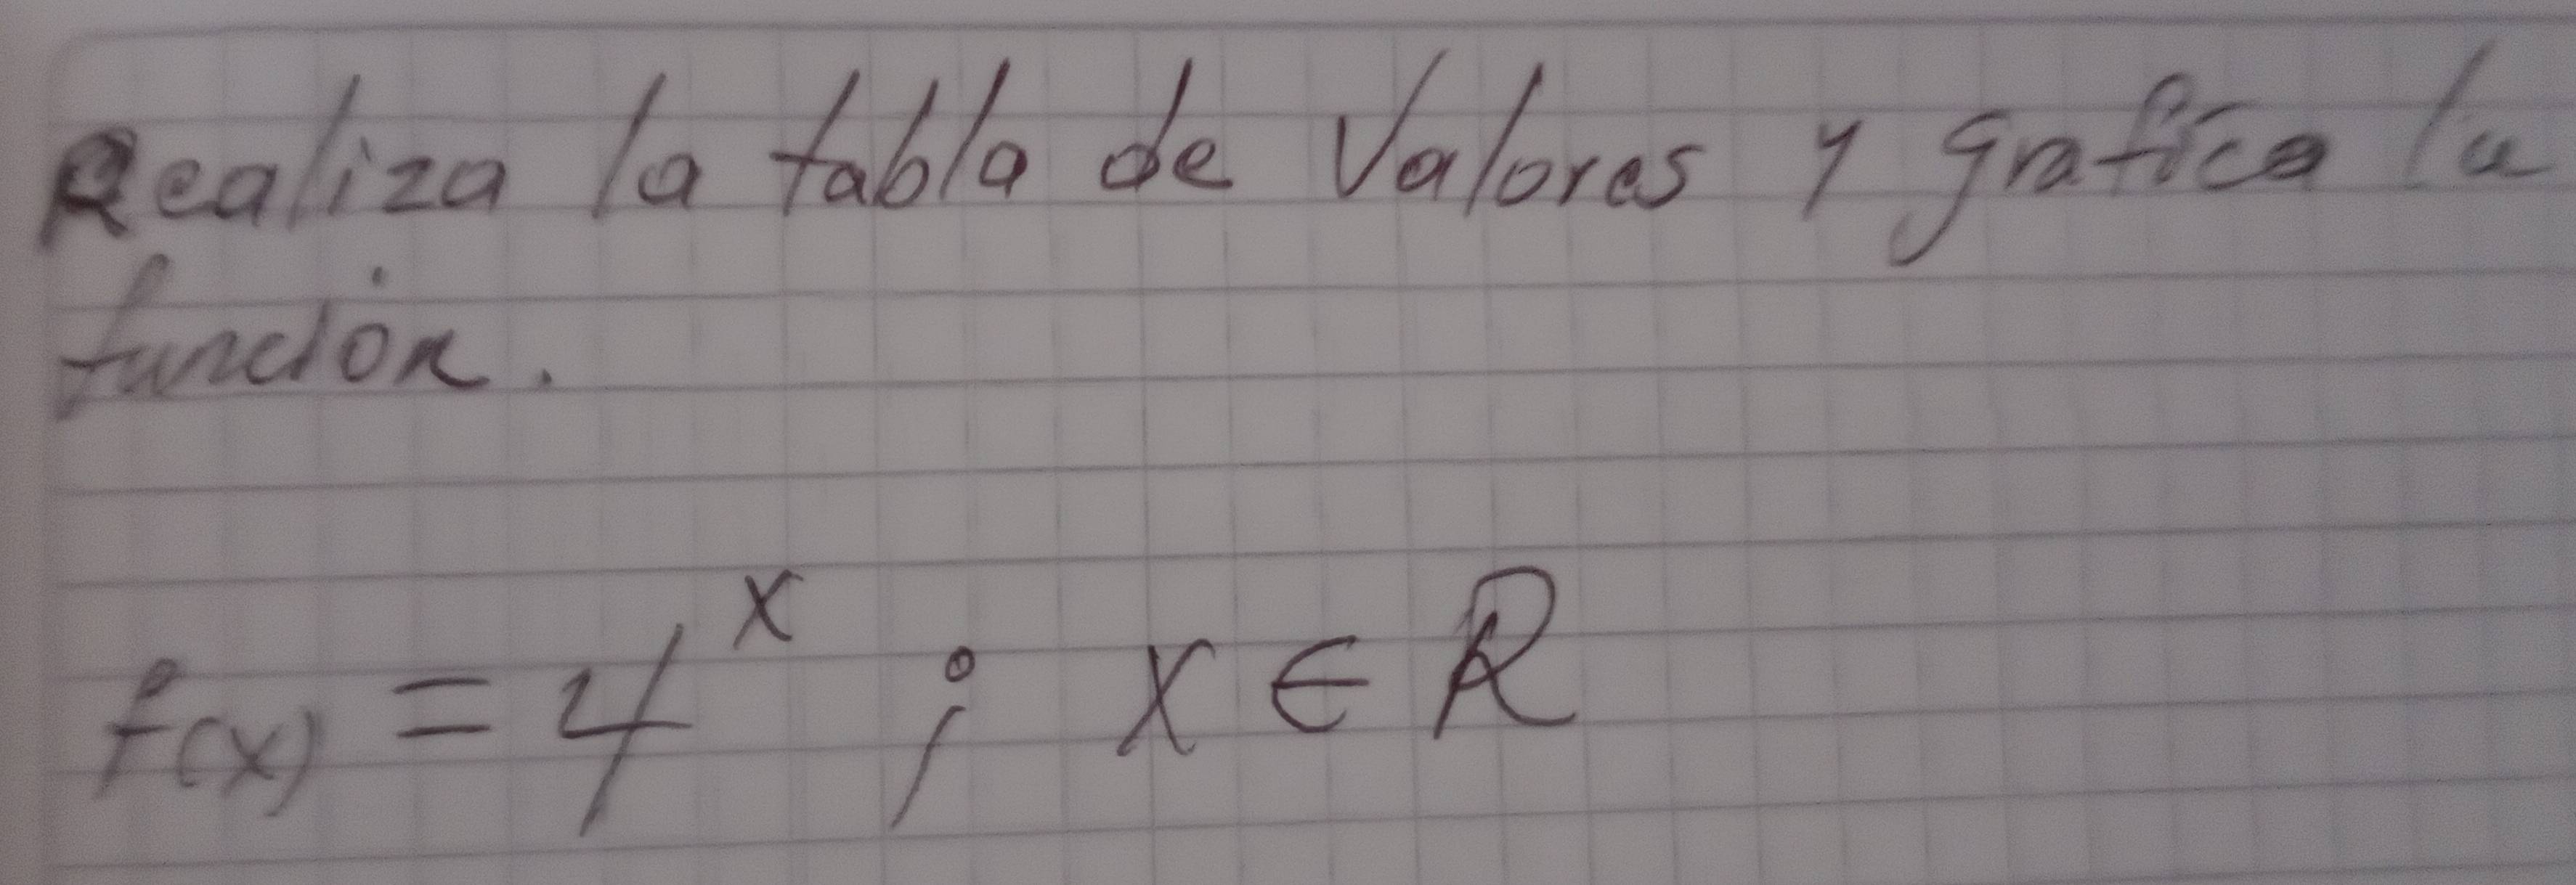 Realiza la tabla de Valores y grafica la
función.
f(x) = 4^x ; x ∈ R